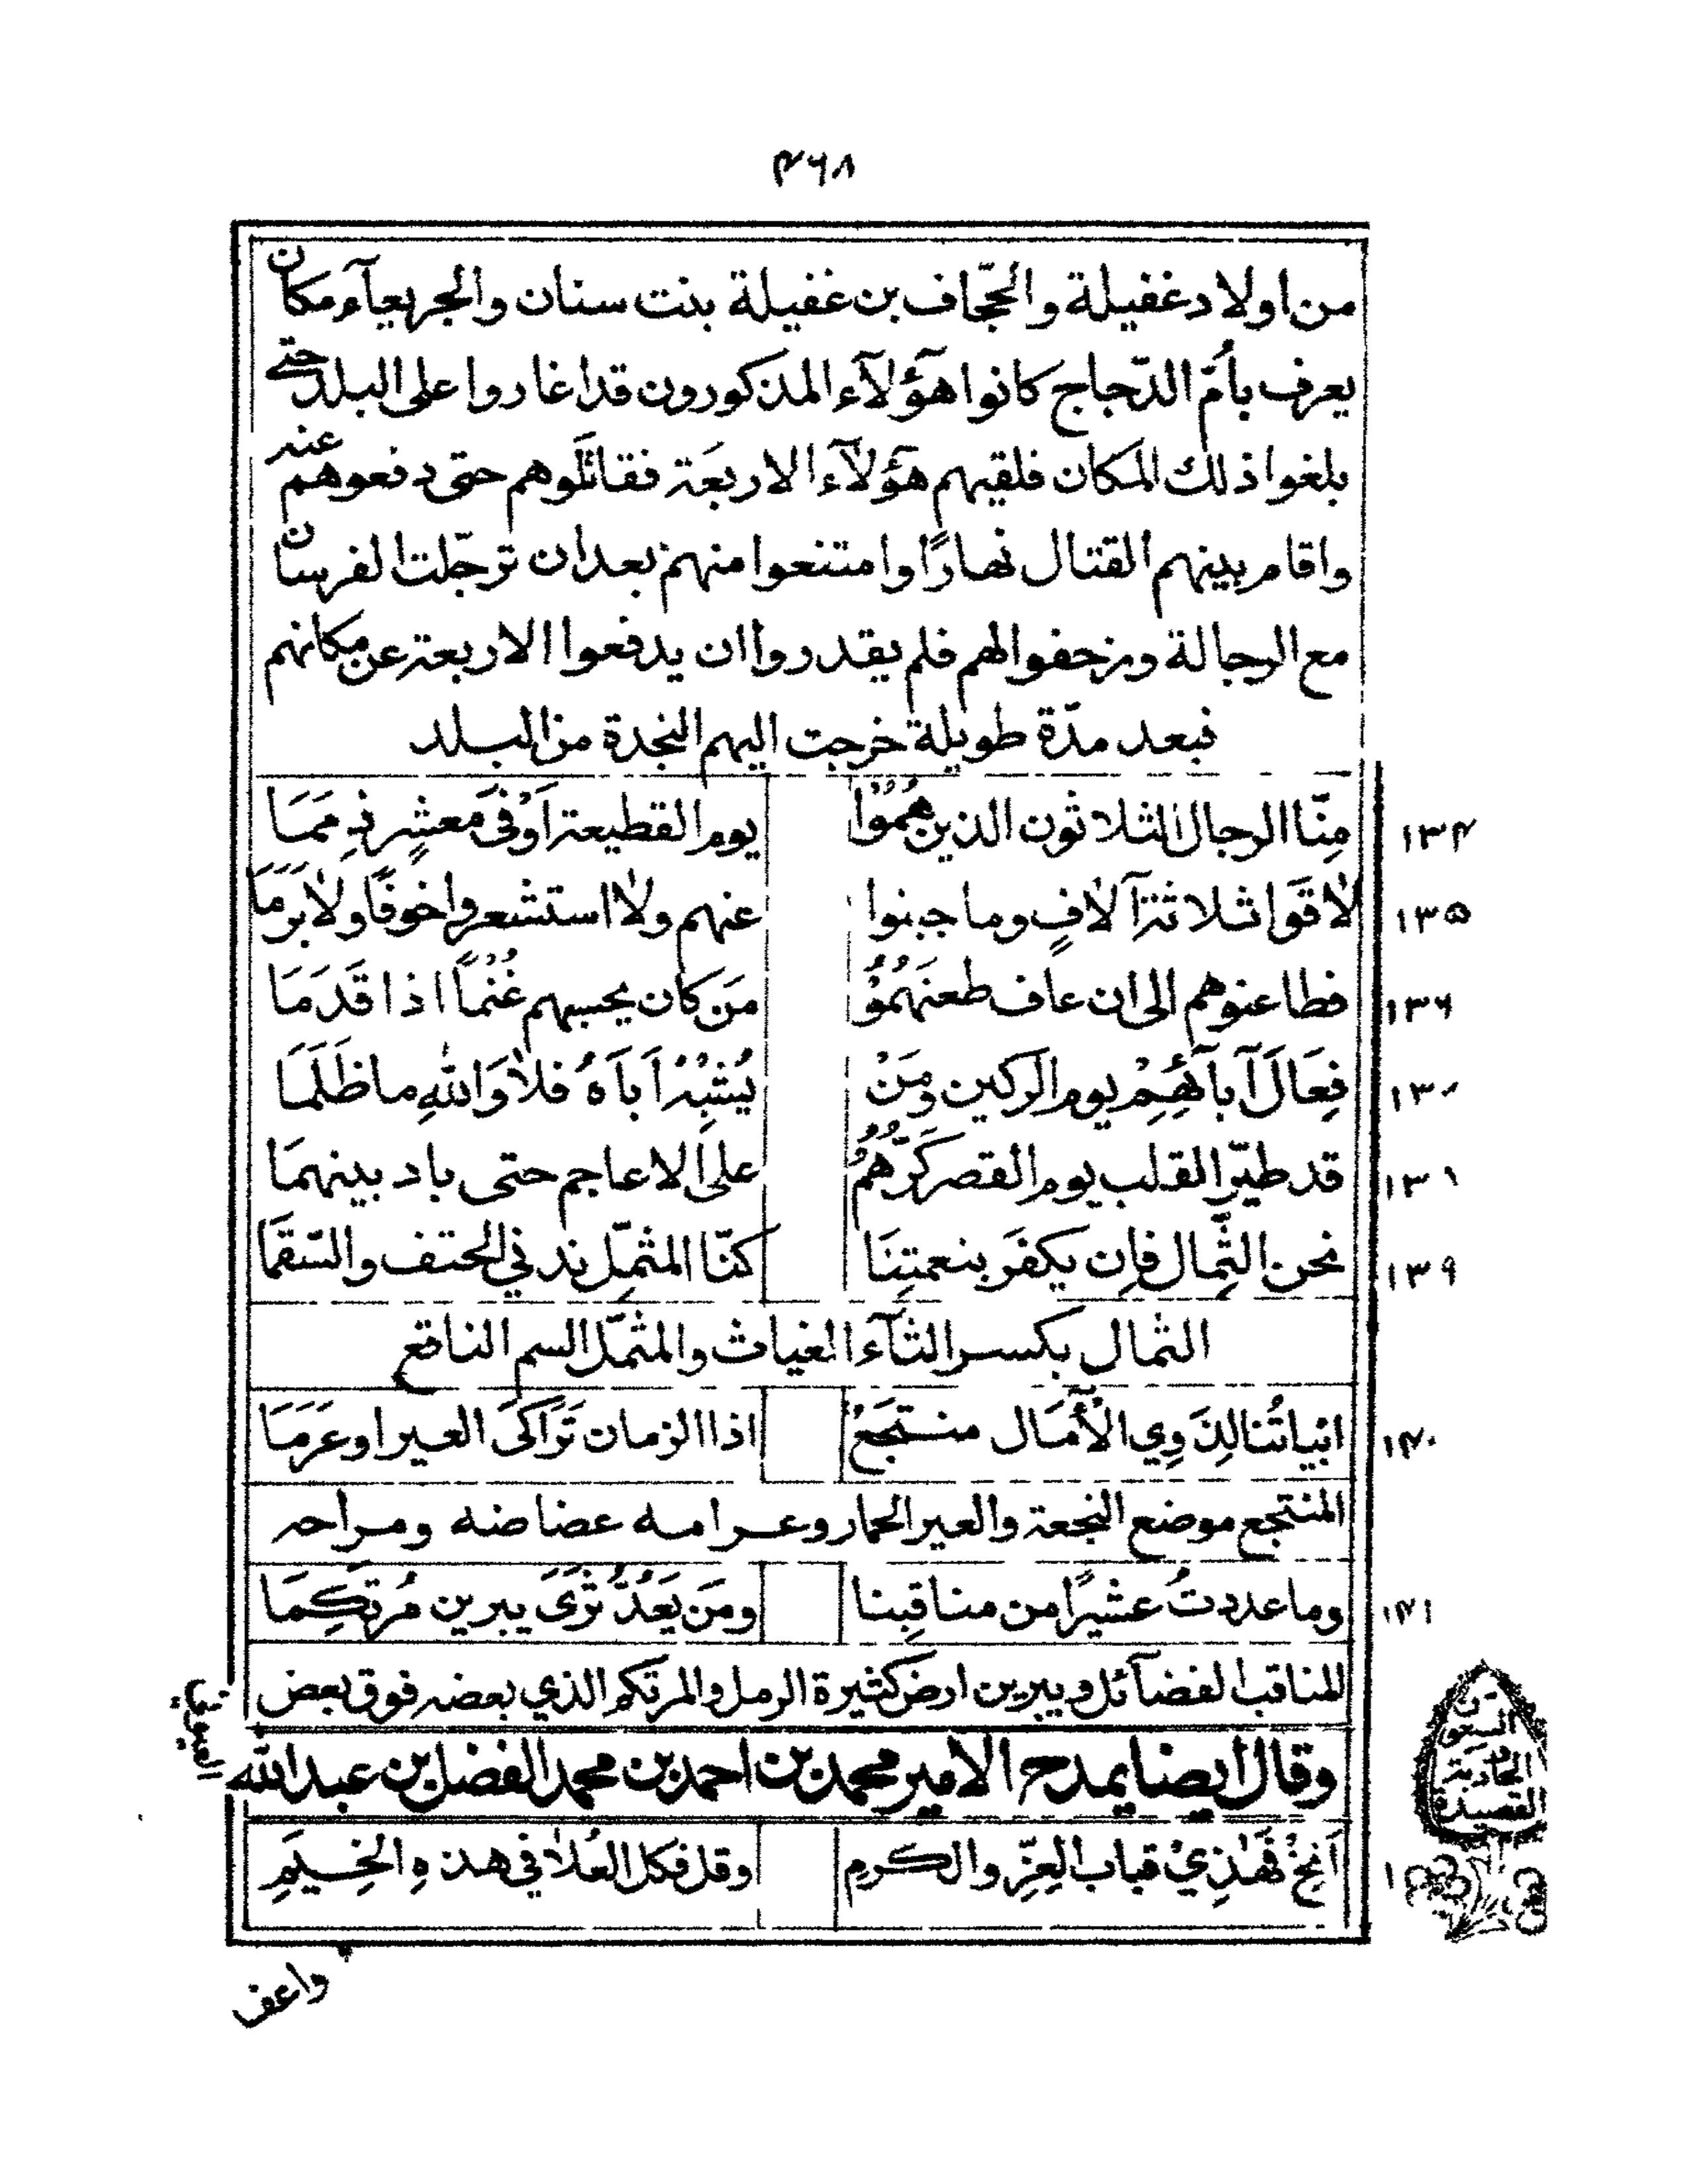 ٤٦٨
من اولاد غفيلة والحجّاف بن غفيلة بنت سنان والجريعآء مكان
يعرف بأمّ الدّجاج كانوا هؤلآء المذكورون قد اغاروا على البلد حتى
بلغوا ذلك المكان فلقيهم هؤلآء الاربعة فقاتلوهم حتى دفعوهم عنه
واقام بينهم القتال نهارًا وامتنعوا منهم بعد ان ترجّلت الفرسان
مع الرجالة وزحفوا لهم فلم يقدروا ان يدفعوا الاربعة عن مكانهم
فبعد مدّة طويلة خرجت اليهم النجدة من البلد
١٣٤ مِنّا الرجال الثلاثون الذين هُمُوْا يوم القطيعة اَوْفىَ معشرٍ ذِمَمَا
١٣٥ لاقَوا ثلاثة آلافٍ وما جبنوا عنهم ولا استشعروا خوفًا ولا بَرَمَا
١٣٦ فطاعنوهم الى ان عاف طعنَهُمُوْ مَن كان يحسبهم غُنْماً اذا قَدَمَا
١٣٧ فِعَالَ آبآئِهِمْ يوم الركين ومَنْ يُشْبِهْ اَباَهُ فلا وَاللهِ ما ظَلَمَا
١٣٨ قد طيّر القلب يوم القصر كَرُّهُمُ على الاعاجم حتى باد بينهمَا
١٣٩ نحن الثِّمال فإن يكفَر بنعمتِنَا كنّا المثمّل ند في الحتف والسّقمَا
الثمال بكسر الثآء الغياث والمثمّل السم الناقع
١٤٠ ابياتُنا لِذَوِي الْأمَال منتجَعٌ اذا الزمان تَرَاكىَ العير او عَرَمَا
المنتجع موضع النجعة والعير الحمار وعرامه عضاضه ومراحه
١٤١ وما عددتُ عشيرًا من مناقِبنا ومَن يَعُدُّ ثَرَىَ يبرين مُرتكِمَا
المناقب الفضآئل ويبرين ارض كثيرة الرمل والمرتكم الذي بعضه فوق بعض
وقال ايضا يمدح الامير محمد بن احمد بن محمد الفضل بن عبدالله العيوني
القصيدة الحادية السبعون
١ اَنِخْ فَهٰذِيْ قباب العِزِّ والكرمِ وقل فكل العُلا في هذهِ الخِيَمِ
واعف